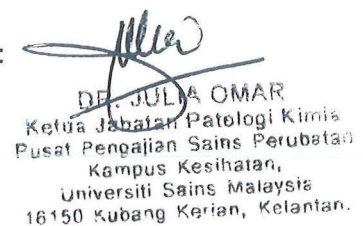 :
DR. JULIA OMAR
Ketua Jabatan Patologi Kimia
Pusat Pengajian Sains Perubatan
Kampus Kesihatan,
Universiti Sains Malaysia
16150 Kubang Kerian, Kelantan.